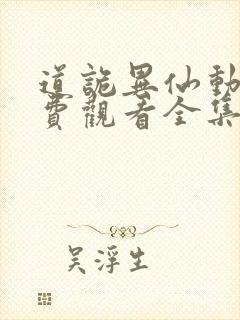 道詭異仙動
費觀看全集
吳浮生